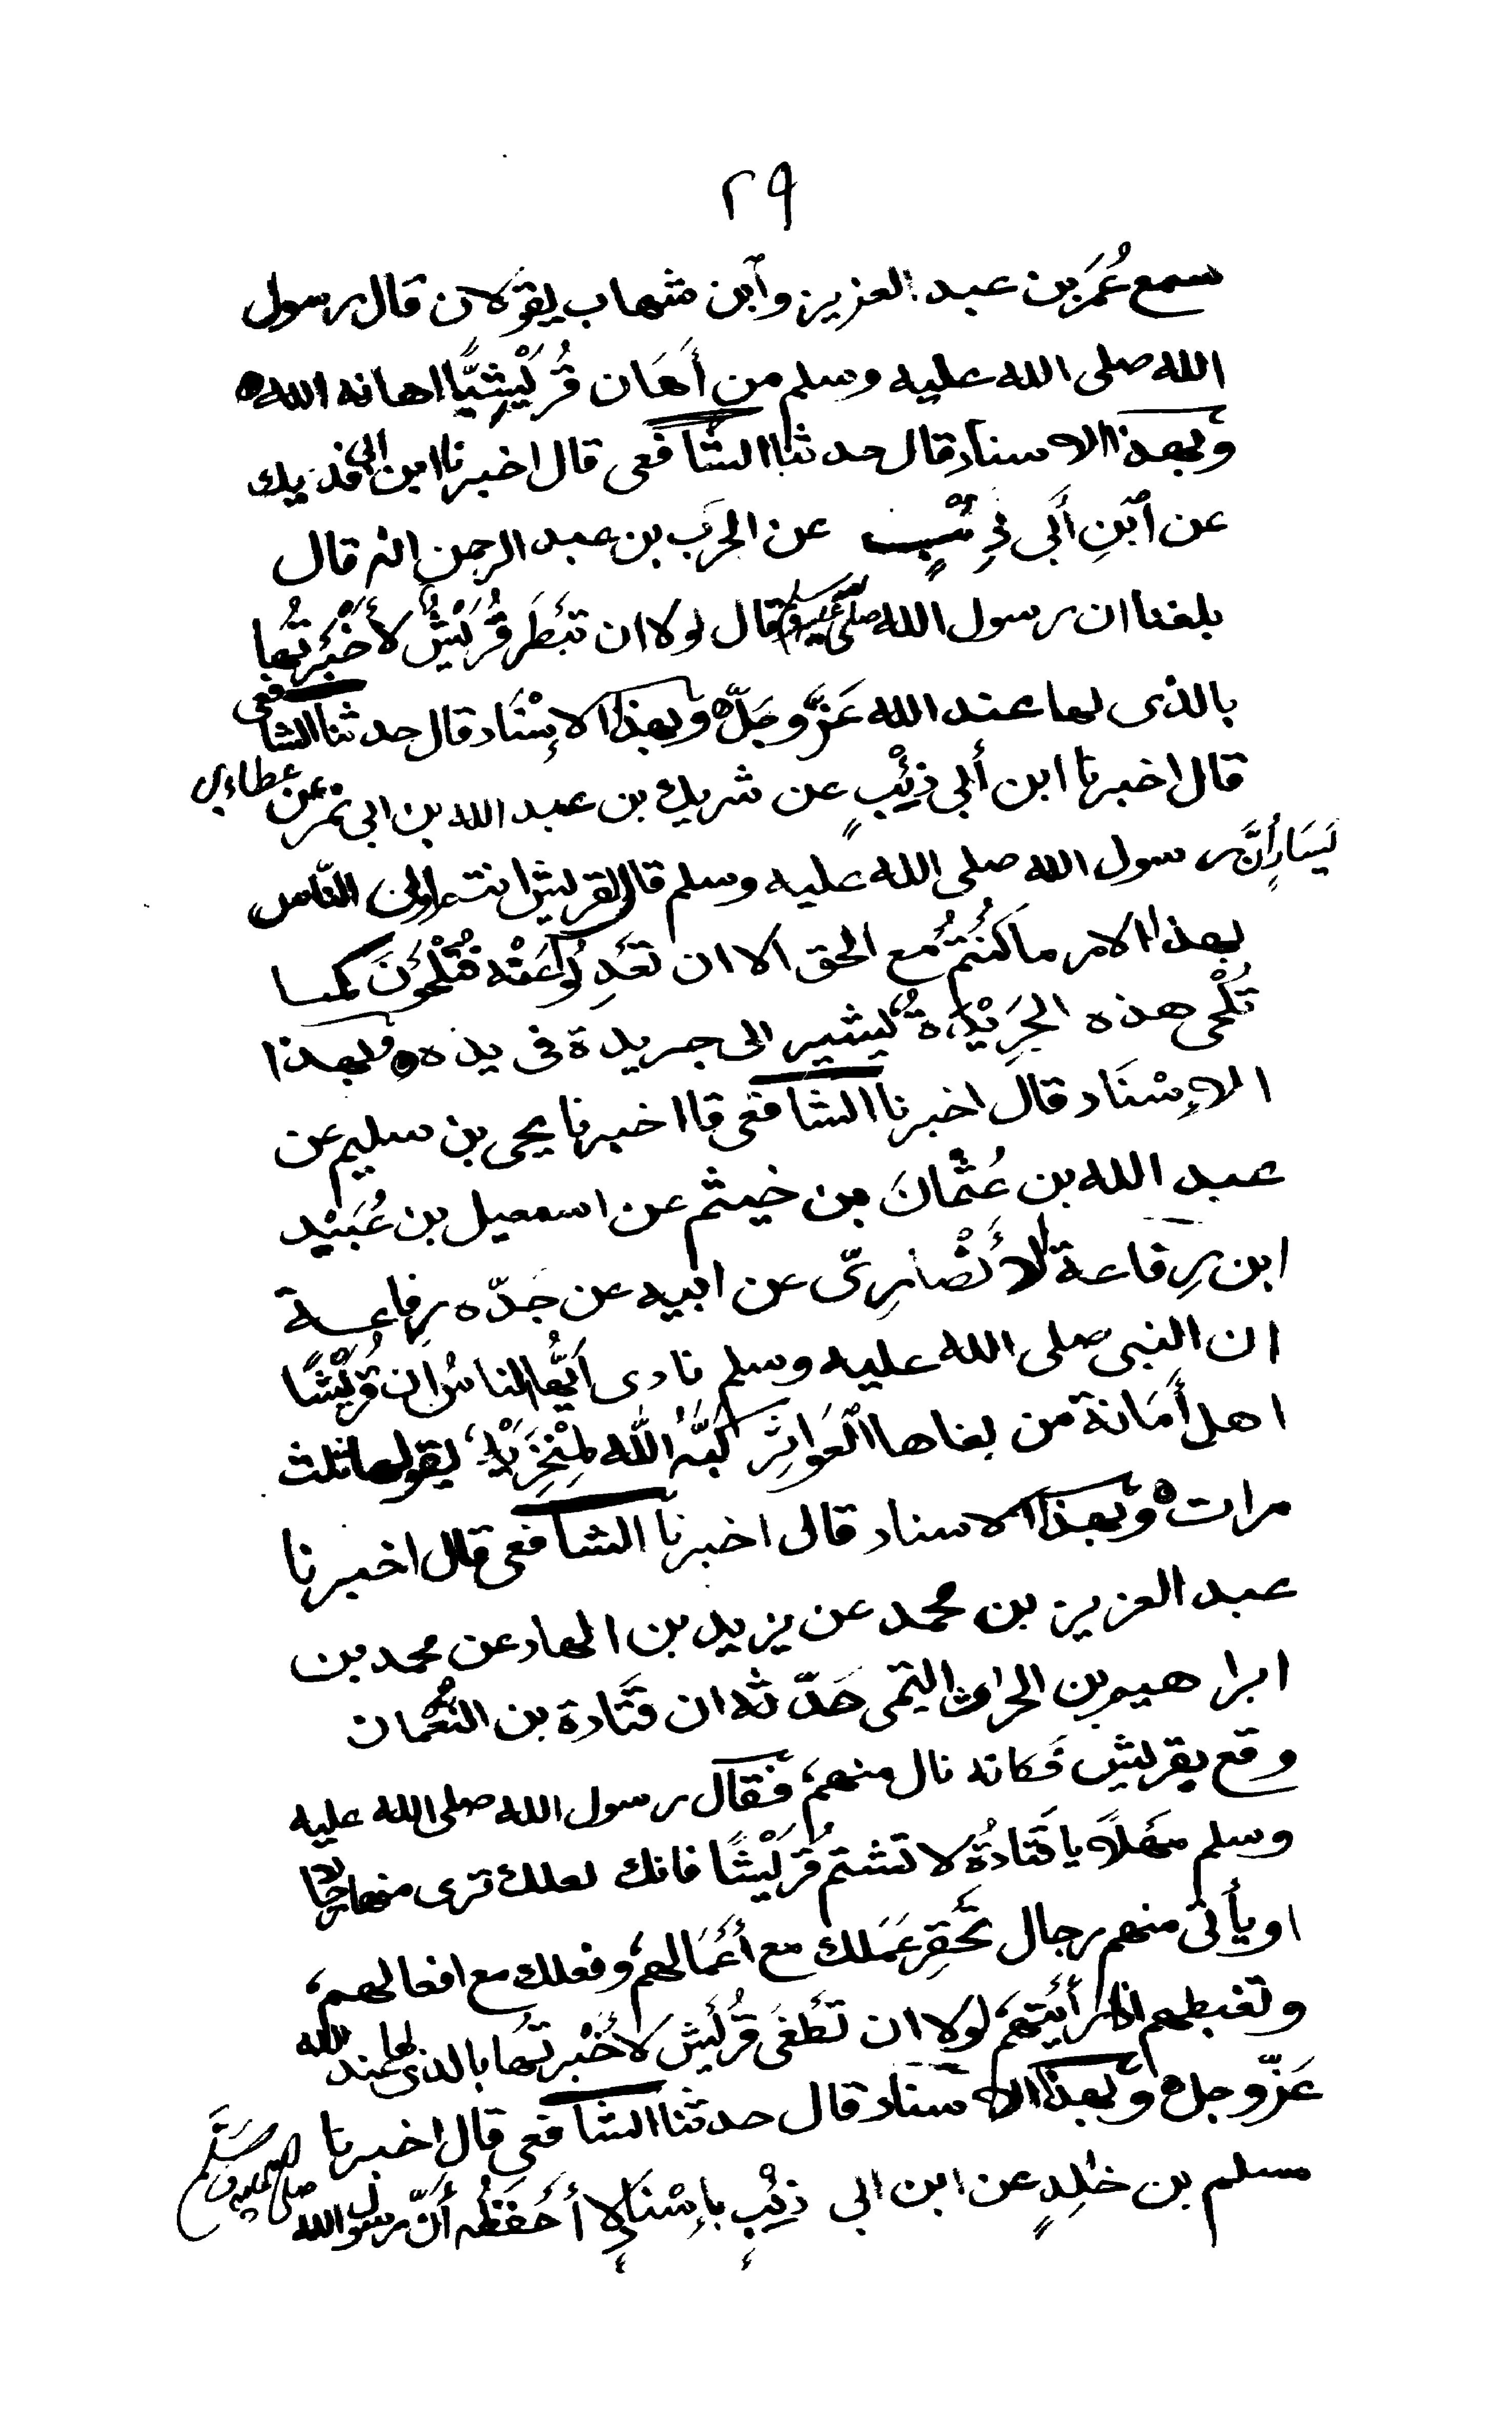 ٢٩
سمع عُمَرَ بن عبد العزيز وٱبن شهاب يقولان قال رسول
الله صلى الله عليه وسلم من أَهَان قُرَيْشِيًّا اهانه الله ه
وبهذا الاسناد قال حدثنا الشافعى قال اخبرنا ابن ابى فديك
عن ٱبْنِ أَبى ذِئْبٍ عن الحرث بن عبد الرحمن انه قال
بلغنا ان رسول الله صلى الله عليه وسلم قال لولا ان تَبْطَرَ قُرَيْشٌ لأَخْبَرْتُها
بالذى لها عند الله عَزَّ وجَلَّ ه وبهذا الإِسْنَاد قال حدثنا الشافعى
قال اخبرنا ابن أبى ذِئْبٍ عن شريك بن عبد الله بن ابى نمر عن عطاء بن
يَسَارٍ أَنَّ رسول الله صلى الله عليه وسلم قال لقريش انتم اولى الناس
بهذا الامر ما كُنْتُمْ مع الحق الا ان تَعْدِلُوا عَنْه فَتُلْحَوْنَ كما
تُلْحى هذه الجَرِيْدَةُ يُشير الى جريدة فى يده ه وبهذا
الإِسْنَاد قال اخبرنا الشافعى قا اخبرنا يحى بن سليم عن
عبد الله بن عُثْمانَ بن خيثم عن اسمعيل بن عُبَيْد
ابن رِفاعة الأَنْصَارِىّ عن ابيه عن جَدّه رِفاعة
ان النبى صلى الله عليه وسلم نادى أَيُّها الناسُ ان قُرَيْشًا
اهل أَمَانة من بغاها ٱلْعَواثِرَ كَبَّهُ اللهُ لِمِنْخَرَيْهِ، يقولها ثلث
مرات ه وبهذا الاسناد قال اخبرنا الشافعى قال اخبرنا
عبد العزيز بن محمد عن يزيد بن الهاد عن محمد بن
ابراهيم بن الحارث التيمى حَدّثه ان قَتَادة بن النُّعْمان
وقع بقريش فكانه نال منهم، فقال رسول الله صلى الله عليه
وسلم مَهْلاً يا قَتَادةُ لا تشتم قُرَيْشًا فانك لعلك ترى منها رجالا
او يأتى منهم رجال تَحْقِر عَمَلك مع أَعْمَالهم، وفعلك مع افعالهم،
وتغبطهم اذا رأَيْتَهم، لولا ان تَطْغَى قُرَيْش لأَخْبَرْتُها بالذى لها عند الله
عَزّ وجل ه وبهذا الاسناد قال حدثنا الشافعى قال اخبرنا
مسلم بن خٰلِدٍ عن ابن ابى ذِئْبٍ بإِسْنادٍ لا أَحْفَظُه أَنّ رسول الله صلى الله عليه وسَلَّم